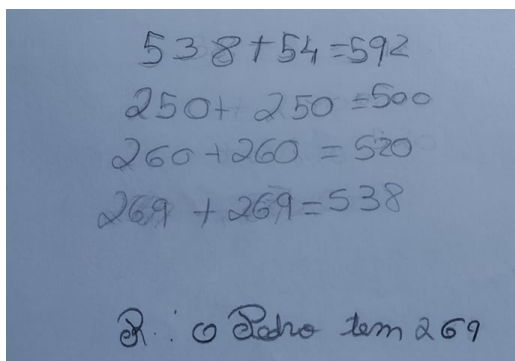 538+54=592
250+ 250=500
260+260 = 520
269 + 269=538
R.: O Pedro tem 269